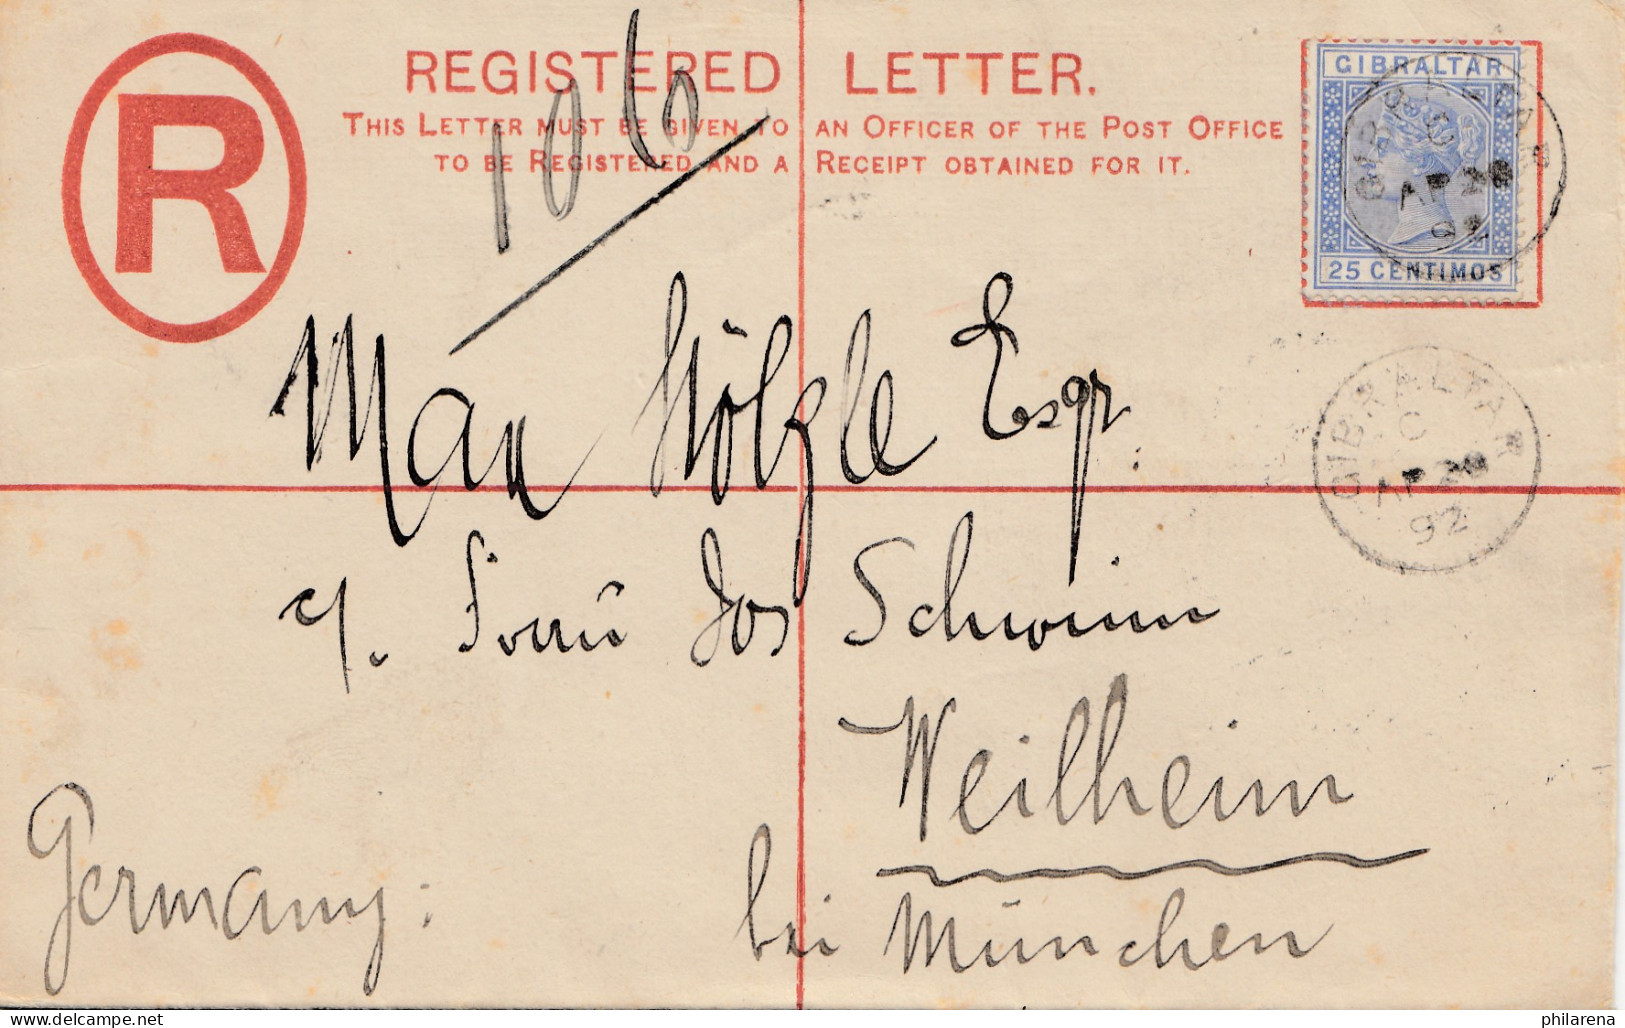 R
REGISTERED LETTER.
THIS LETTER MUST BE GIVEN TO AN OFFICER OF THE POST OFFICE
TO BE REGISTERED AND A RECEIPT OBTAINED FOR IT.
GIBRALTAR
25 CENTIMOS
GIBRALTAR
C
AP 20
92
Max Hölzle Esqr.
Jos Schwinn
Weilheim
bei München
Germany:
www.delcampe.net
philarena